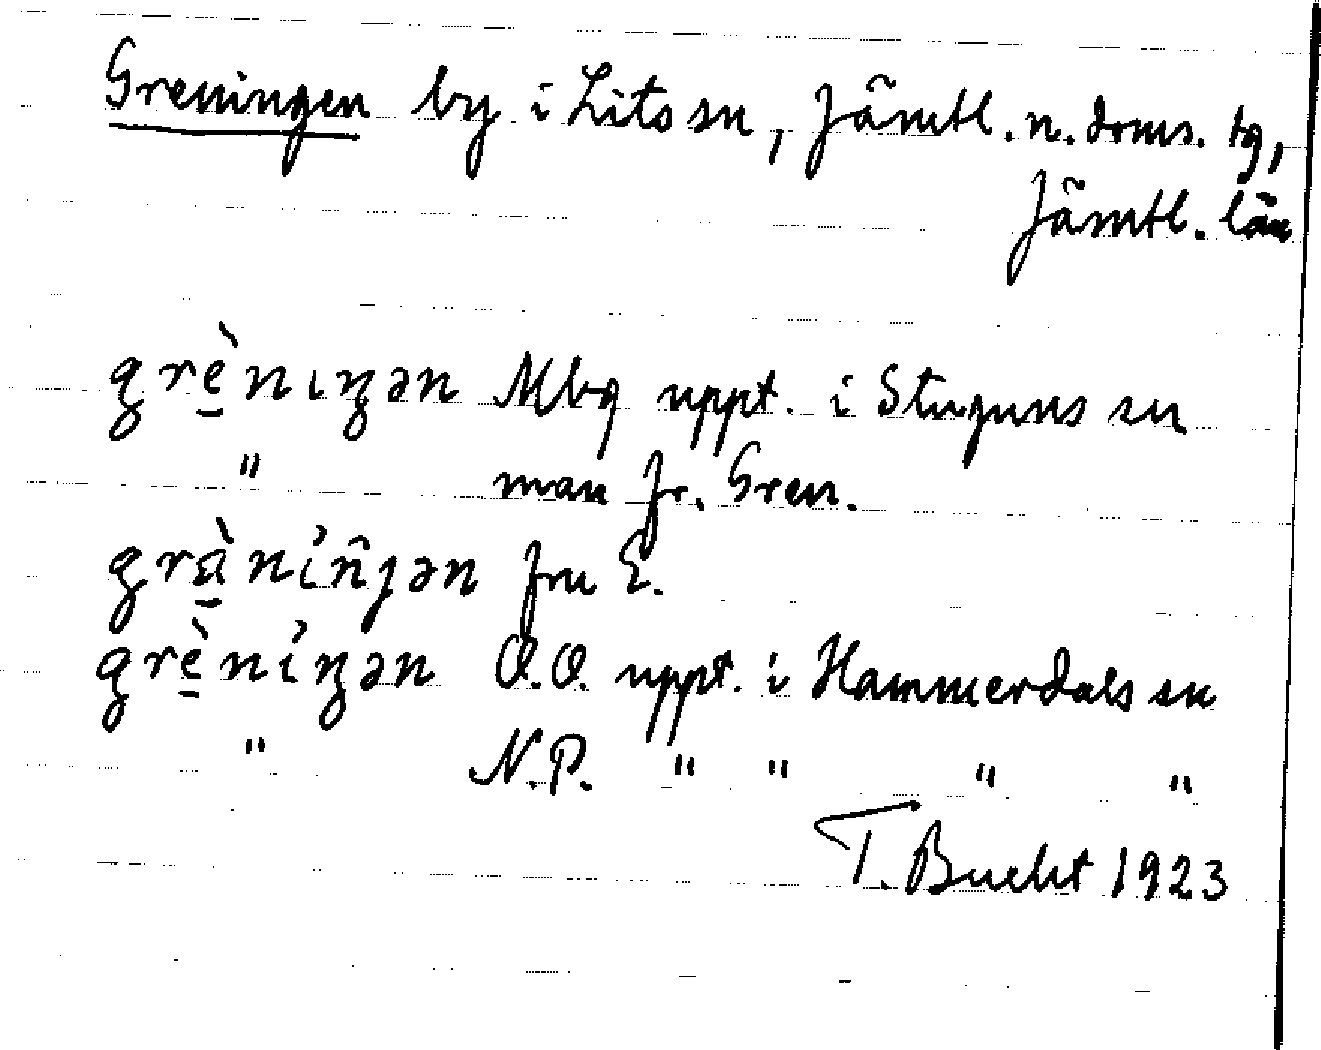 Greningen by i Lits sn, Jämtl. n. doms. tg,
Jämtl. län
grènıŋən Mbg uppt. i Stuguns sn
" man fr. Gren.
grànіñȷən fru E.
grèniŋən O.O. uppt. i Hammerdals sn
" N.P. " " " "
T. Bucht 1923